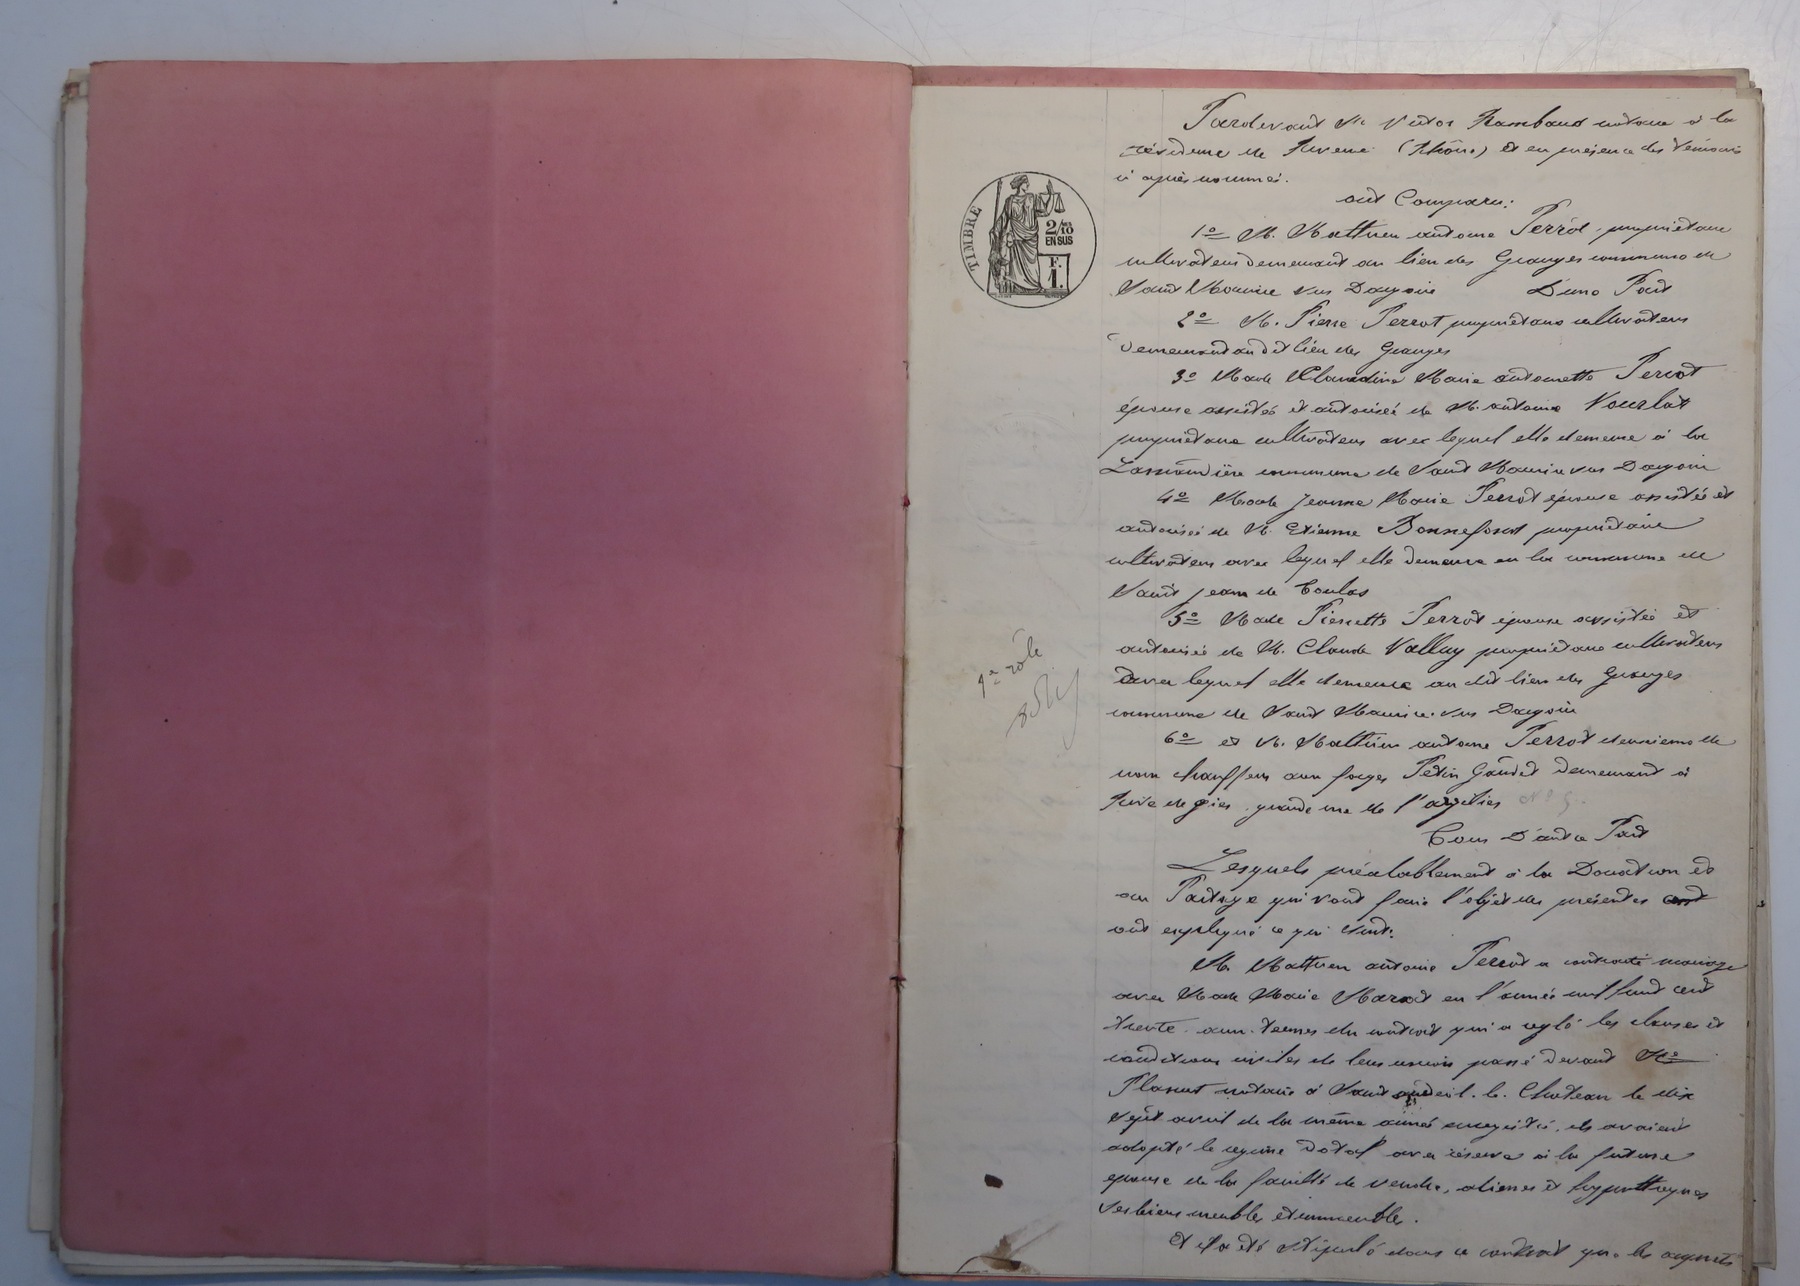 TIMBRE
2/10
EN SUS
F.
1.
Pardevant Me Victor Rambaud notaire à la
résidence de Riverie (Rhône) et en présence des témoins
ci après nommés.
ont Comparu:
1º M. Mathieu antoine Perrot, propriétaire
cultivateur demeurant au lieu des Granges commune de
Saint Maurice sur Dargoire D'une Part
2º M. Pierre Perrot propriétaire cultivateur
demeurant au dit lieu des Granges
3º Made Claudine Marie antoinette Perrot
épouse assistée et autorisée de M. antoine Vourlat
propriétaire cultivateur avec lequel elle demeure à la
commune de Saint Maurice sur Dargoire
4º Made Jeanne Marie Perrot épouse assistée et
autorisée de M. Etienne Bonnefond propriétaire
cultivateur avec lequel elle demeure en la commune de
Saint Jean de Toulas
5º Made Pierrette Perrot épouse assistée et
autorisée de M. Claude Valluy propriétaire cultivateur
avec lequel elle demeure au dit lieu des Granges
commune de Saint Maurice sur Dargoire
1er rôle
6º et M. Mathieu antoine Perrot deuxième de
nom chauffeur aux forges Petin Gaudet demeurant à
Rive de gier grande rue de
Tous D'autre Part
Lesquels préalablement à la Donation et
au Partage qui vont faire l'objet des présentes ont
ont expliqué ce qui suit:
M. Mathieu antoine Perrot a contracté mariage
avec Made Marie en l'année mil huit cent
trente. aux termes du contrat qui a reglé les clauses et
conditions civiles de leur union passé devant Me
notaire à Saint le Chateau le dix
sept avril de la même année enregistré, ils avaient
adopté le regime dotal avec réserve à la future
épouse de la faculté de vendre, aliener et hypothequer
ses biens meubles et immeubles.
Et il a été stipulé dans ce contrat que les acquets